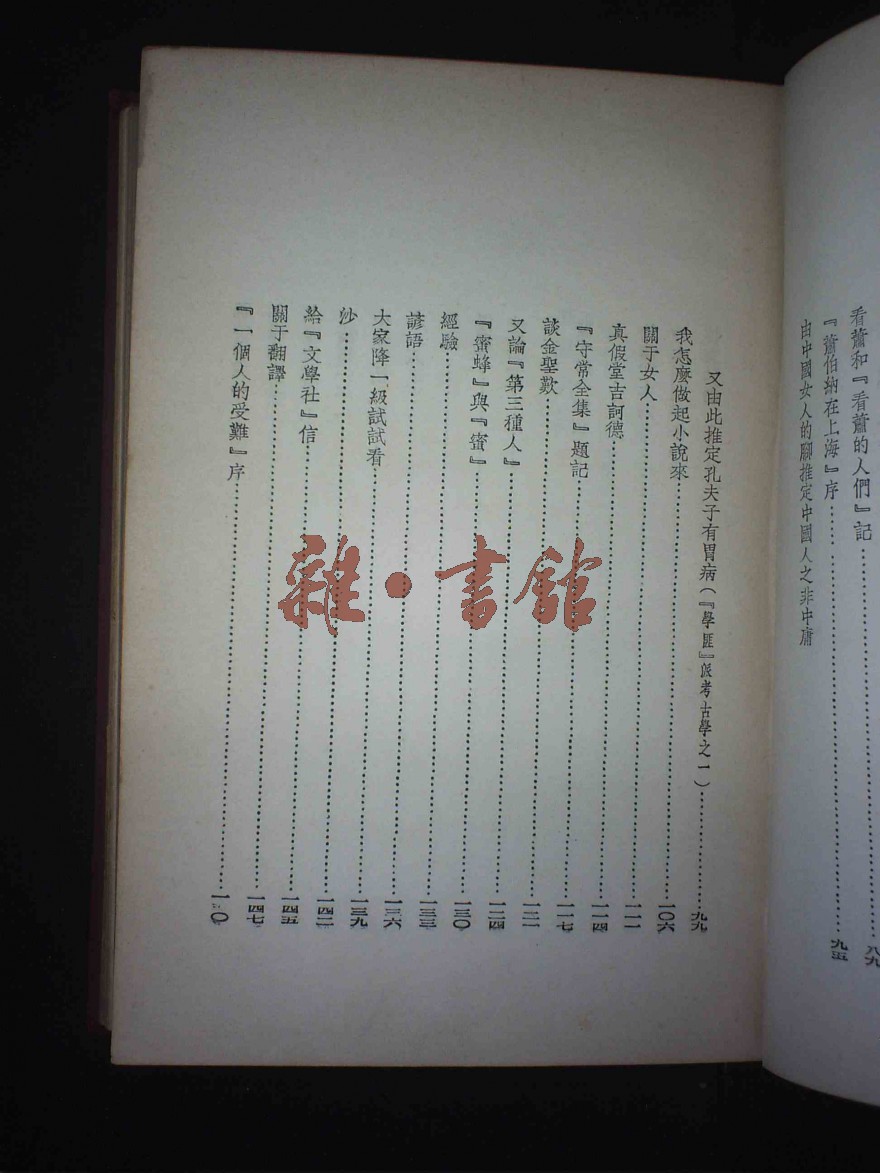 看蕭和『看蕭的人們』記……八九
『蕭伯納在上海』序……九五
由中國女人的腳推定中國人之非中庸
又由此推定孔夫子有胃病（『學匪』派考古學之一）……九九
我怎麼做起小說來……一〇六
關于女人……一一一
真假堂吉訶德……一一四
『守常全集』題記……一一七
談金聖歎……一二一
又論『第三種人』……一二四
『蜜蜂』與『蜜』……一三〇
經驗……一三三
諺語……一三六
大家降一級試試看……一三九
沙……一四二
給『文學社』信……一四五
關于翻譯……一四七
『一個人的受難』序
雜·書館